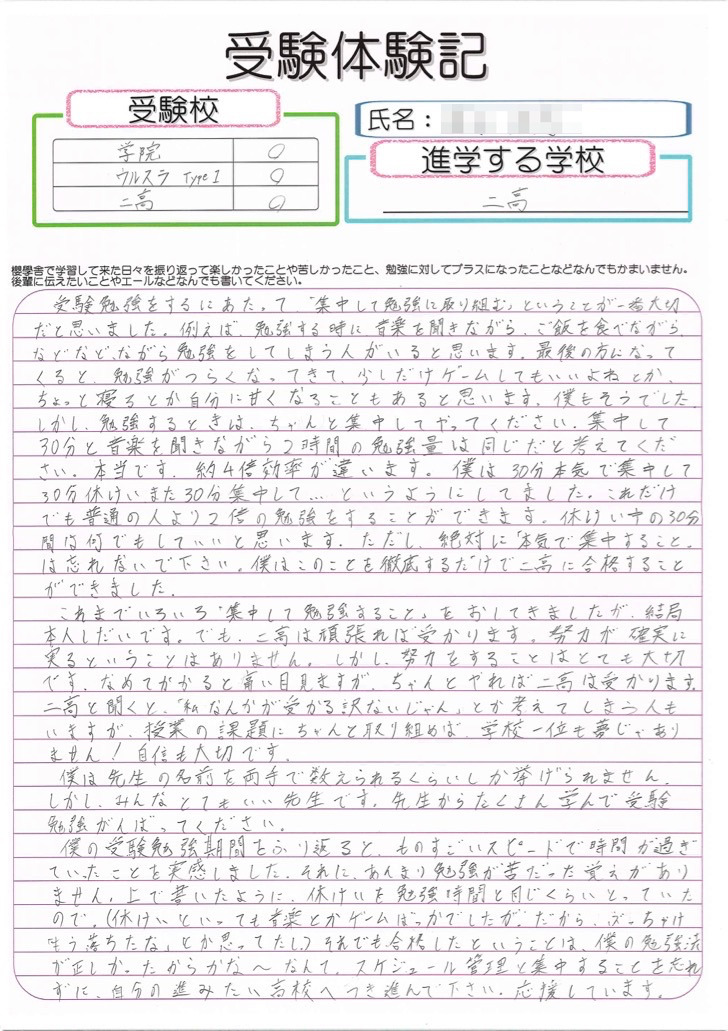 受験体験記
受験校
氏名：
学院 ○
ウルスラ Type I ○
二高 ○
進学する学校
二高
櫻學舎で学習して来た日々を振り返って楽しかったことや苦しかったこと、勉強に対してプラスになったことなどなんでもかまいません。
後輩に伝えたいことやエールなどなんでも書いてください。
受験勉強をするにあたって、「集中して勉強に取り組む」ということが一番大切
だと思いました。例えば、勉強する時に音楽を聞きながら、ご飯を食べながら、
などなど、ながら勉強をしてしまう人がいると思います。最後の方になって
くると、勉強がつらくなってきて、少しだけゲームしてもいいよねとか、
ちょっと寝ろとか自分に甘くなることもあると思います。僕もそうでした。
しかし、勉強するときは、ちゃんと集中してやってください。集中して
30分と音楽を聞きながら2時間の勉強量は同じだと考えてくだ
さい。本当です。約4倍効率が違います。僕は30分本気で集中して
30分休けいまた30分集中して…というようにしてました。これだけ
でも普通の人より2倍の勉強をすることができます。休けい中の30分
間は何でもしていいと思います。ただし、絶対に「本気で集中すること」
は忘れないで下さい。僕はこのことを徹底するだけで二高に合格すること
ができました。
これまでいろいろ「集中して勉強すること」をおしてきましたが、結局
本人しだいです。でも、二高は頑張れば受かります。努力が確実に
実るということはありません。しかし、努力をすることはとても大切
です。なめてかかると痛い目見ますが、ちゃんとやれば二高は受かります。
二高と聞くと、「私なんかが受かる訳ないじゃん」とか考えてしまう人も
いますが、授業の課題にちゃんと取り組めば、学校一位も夢じゃあり
ません！自信も大切です。
僕は先生の名前を両手で数えられるくらいしか挙げられません。
しかし、みんなとてもいい先生です。先生からたくさん学んで受験
勉強がんばってください。
僕の受験勉強期間をふり返ると、ものすごいスピードで時間が過ぎ
ていったことを実感しました。それに、あんまり勉強が苦だった覚えがあり
ません。上で書いたように、休けいを勉強時間と同じくらいとっていた
ので。(休けいといっても音楽とかゲームばっかでしたが。だから、ぶっちゃけ
「もう落ちたな」とか思ってたし。)それでも合格したということは、僕の勉強法
が正しかったからかな～なんて。スケジュール管理と集中することを忘れ
ずに、自分の進みたい高校へつき進んで下さい。応援しています。